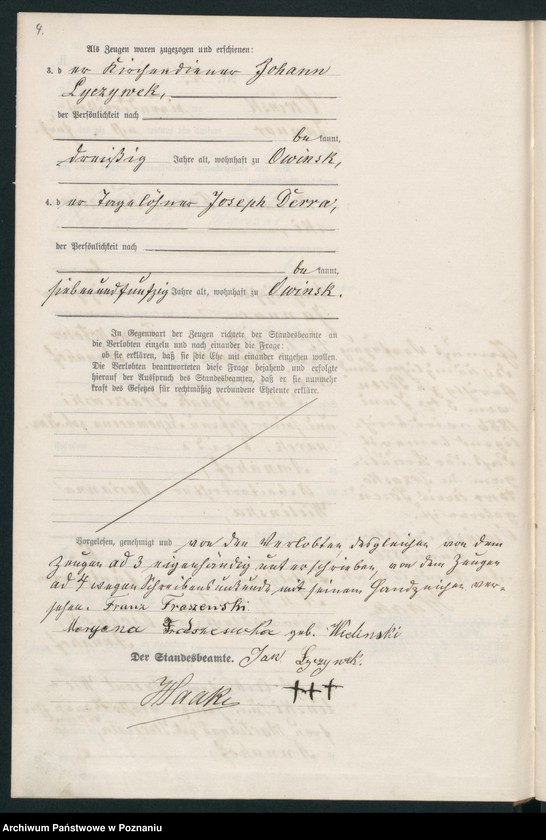 4.
Als Zeugen waren zugezogen und erschienen:
3. der Kirchendiener Johann
Lyczywek,
der Persönlichkeit nach
bekannt,
dreißig Jahre alt, wohnhaft zu Owinsk,
4. der Tagelöhner Joseph Derra,
der Persönlichkeit nach
bekannt,
siebenundfunfzig Jahre alt, wohnhaft zu Owinsk.
In Gegenwart der Zeugen richtete der Standesbeamte an
die Verlobten einzeln und nach einander die Frage:
ob sie erklären, daß sie die Ehe mit einander eingehen wollen.
Die Verlobten beantworteten diese Frage bejahend und erfolgte
hierauf der Ausspruch des Standesbeamten, daß er sie nunmehr
kraft des Gesetzes für rechtmäßig verbundene Eheleute erkläre.
Vorgelesen, genehmigt und von den Verlobten desgleichen von dem
Zeugen ad 3 eigenhändig unterschrieben, von dem Zeugen
ad 4 wegen Schreibensunkunde mit seinem Handzeichen ver-
sehen. Franz Fraszewski
Maryena geb. Wielinski
Der Standesbeamte. Jan Łyczywek.
Haake +++
Archiwum Państwowe w Poznaniu